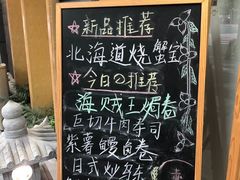 ☆新品推荐
北海道烧蟹宝
☆今日の推荐
海贼王焗卷
巨切牛肉寿司
紫薯鳗鱼卷
日式炒乌冬